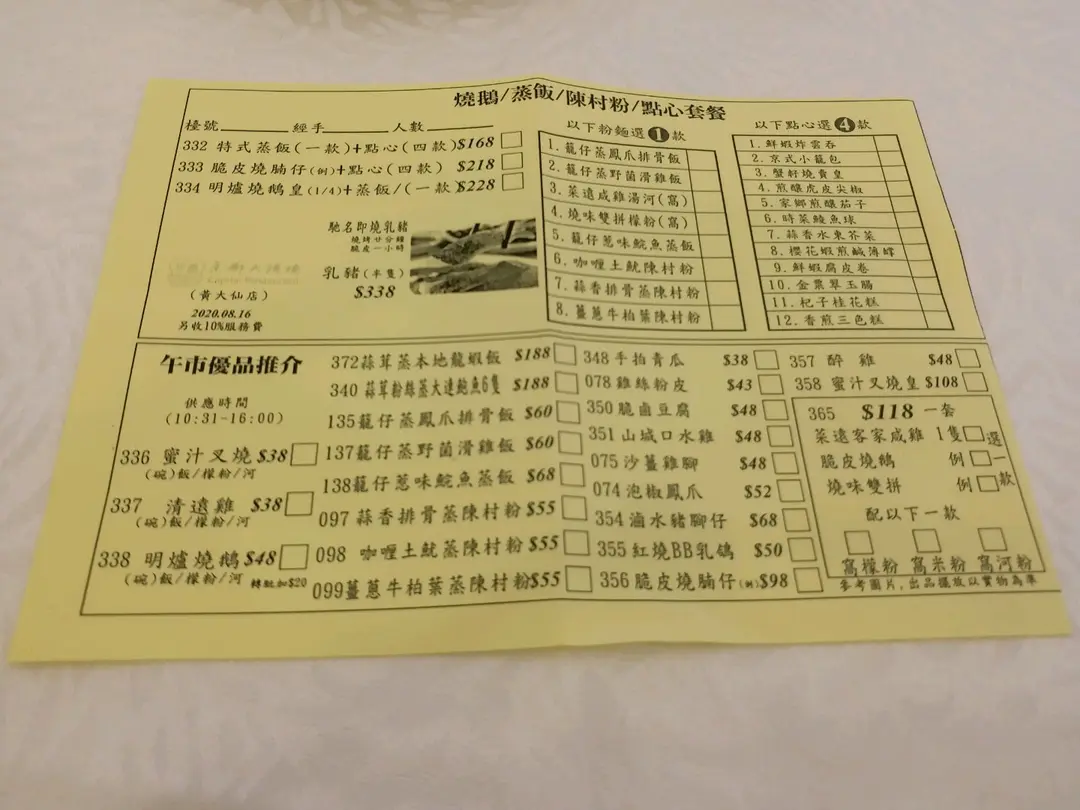 燒鵝/蒸飯/陳村粉/點心套餐
檯號 經手 人數
332 特式蒸飯(一款)+點心(四款)$168
333 脆皮燒腩仔(例)+點心(四款) $218
334 明爐燒鵝皇(1/4)+蒸飯/(一款)$228
馳名即燒乳豬
燒烤廿分鐘
脆皮一小時
乳豬(半隻)
$338
(黃大仙店)
2020.08.16
另收10%服務費
以下粉麵選1款
1. 籠仔蒸鳳爪排骨飯
2. 籠仔蒸野菌滑雞飯
3. 菜遠咸雞湯河(窩)
4. 燒味雙拼檬粉(窩)
5. 籠仔葱味鯇魚蒸飯
6. 咖喱土魷陳村粉
7. 蒜香排骨蒸陳村粉
8. 薑蔥牛柏葉陳村粉
以下點心選4款
1. 鮮蝦炸雲吞
2. 京式小籠包
3. 蟹籽燒賣皇
4. 煎釀虎皮尖椒
5. 家鄉煎釀茄子
6. 時菜鯪魚球
7. 蒜香水東芥菜
8. 櫻花蝦煎鹹薄罉
9. 鮮蝦腐皮卷
10. 金粟翠玉腸
11. 杞子桂花糕
12. 香煎三色糕
午市優品推介
供應時間
(10:31-16:00)
336 蜜汁叉燒 $38
(碗)飯/檬粉/河
337 清遠雞 $38
(碗)飯/檬粉/河
338 明爐燒鵝 $48
(碗)飯/檬粉/河 轉髀加$20
372 蒜茸蒸本地龍蝦飯 $188
340 蒜茸粉絲蒸大連鮑魚6隻 $188
135 籠仔蒸鳳爪排骨飯 $60
137 籠仔蒸野菌滑雞飯 $60
138 籠仔葱味鯇魚蒸飯 $68
097 蒜香排骨蒸陳村粉 $55
098 咖喱土魷蒸陳村粉 $55
099 薑蔥牛柏葉蒸陳村粉 $55
348 手拍青瓜 $38
078 雞絲粉皮 $43
350 脆鹵豆腐 $48
351 山城口水雞 $48
075 沙薑雞腳 $48
074 泡椒鳳爪 $52
354 滷水豬腳仔 $68
355 紅燒BB乳鴿 $50
356 脆皮燒腩仔(例) $98
357 醉雞 $48
358 蜜汁叉燒皇 $108
365 $118 一套
菜遠客家咸雞 1隻
脆皮燒鵝 例
燒味雙拼 例
選一款
配以下一款
窩檬粉 窩米粉 窩河粉
參考圖片,出品擺放以實物為準